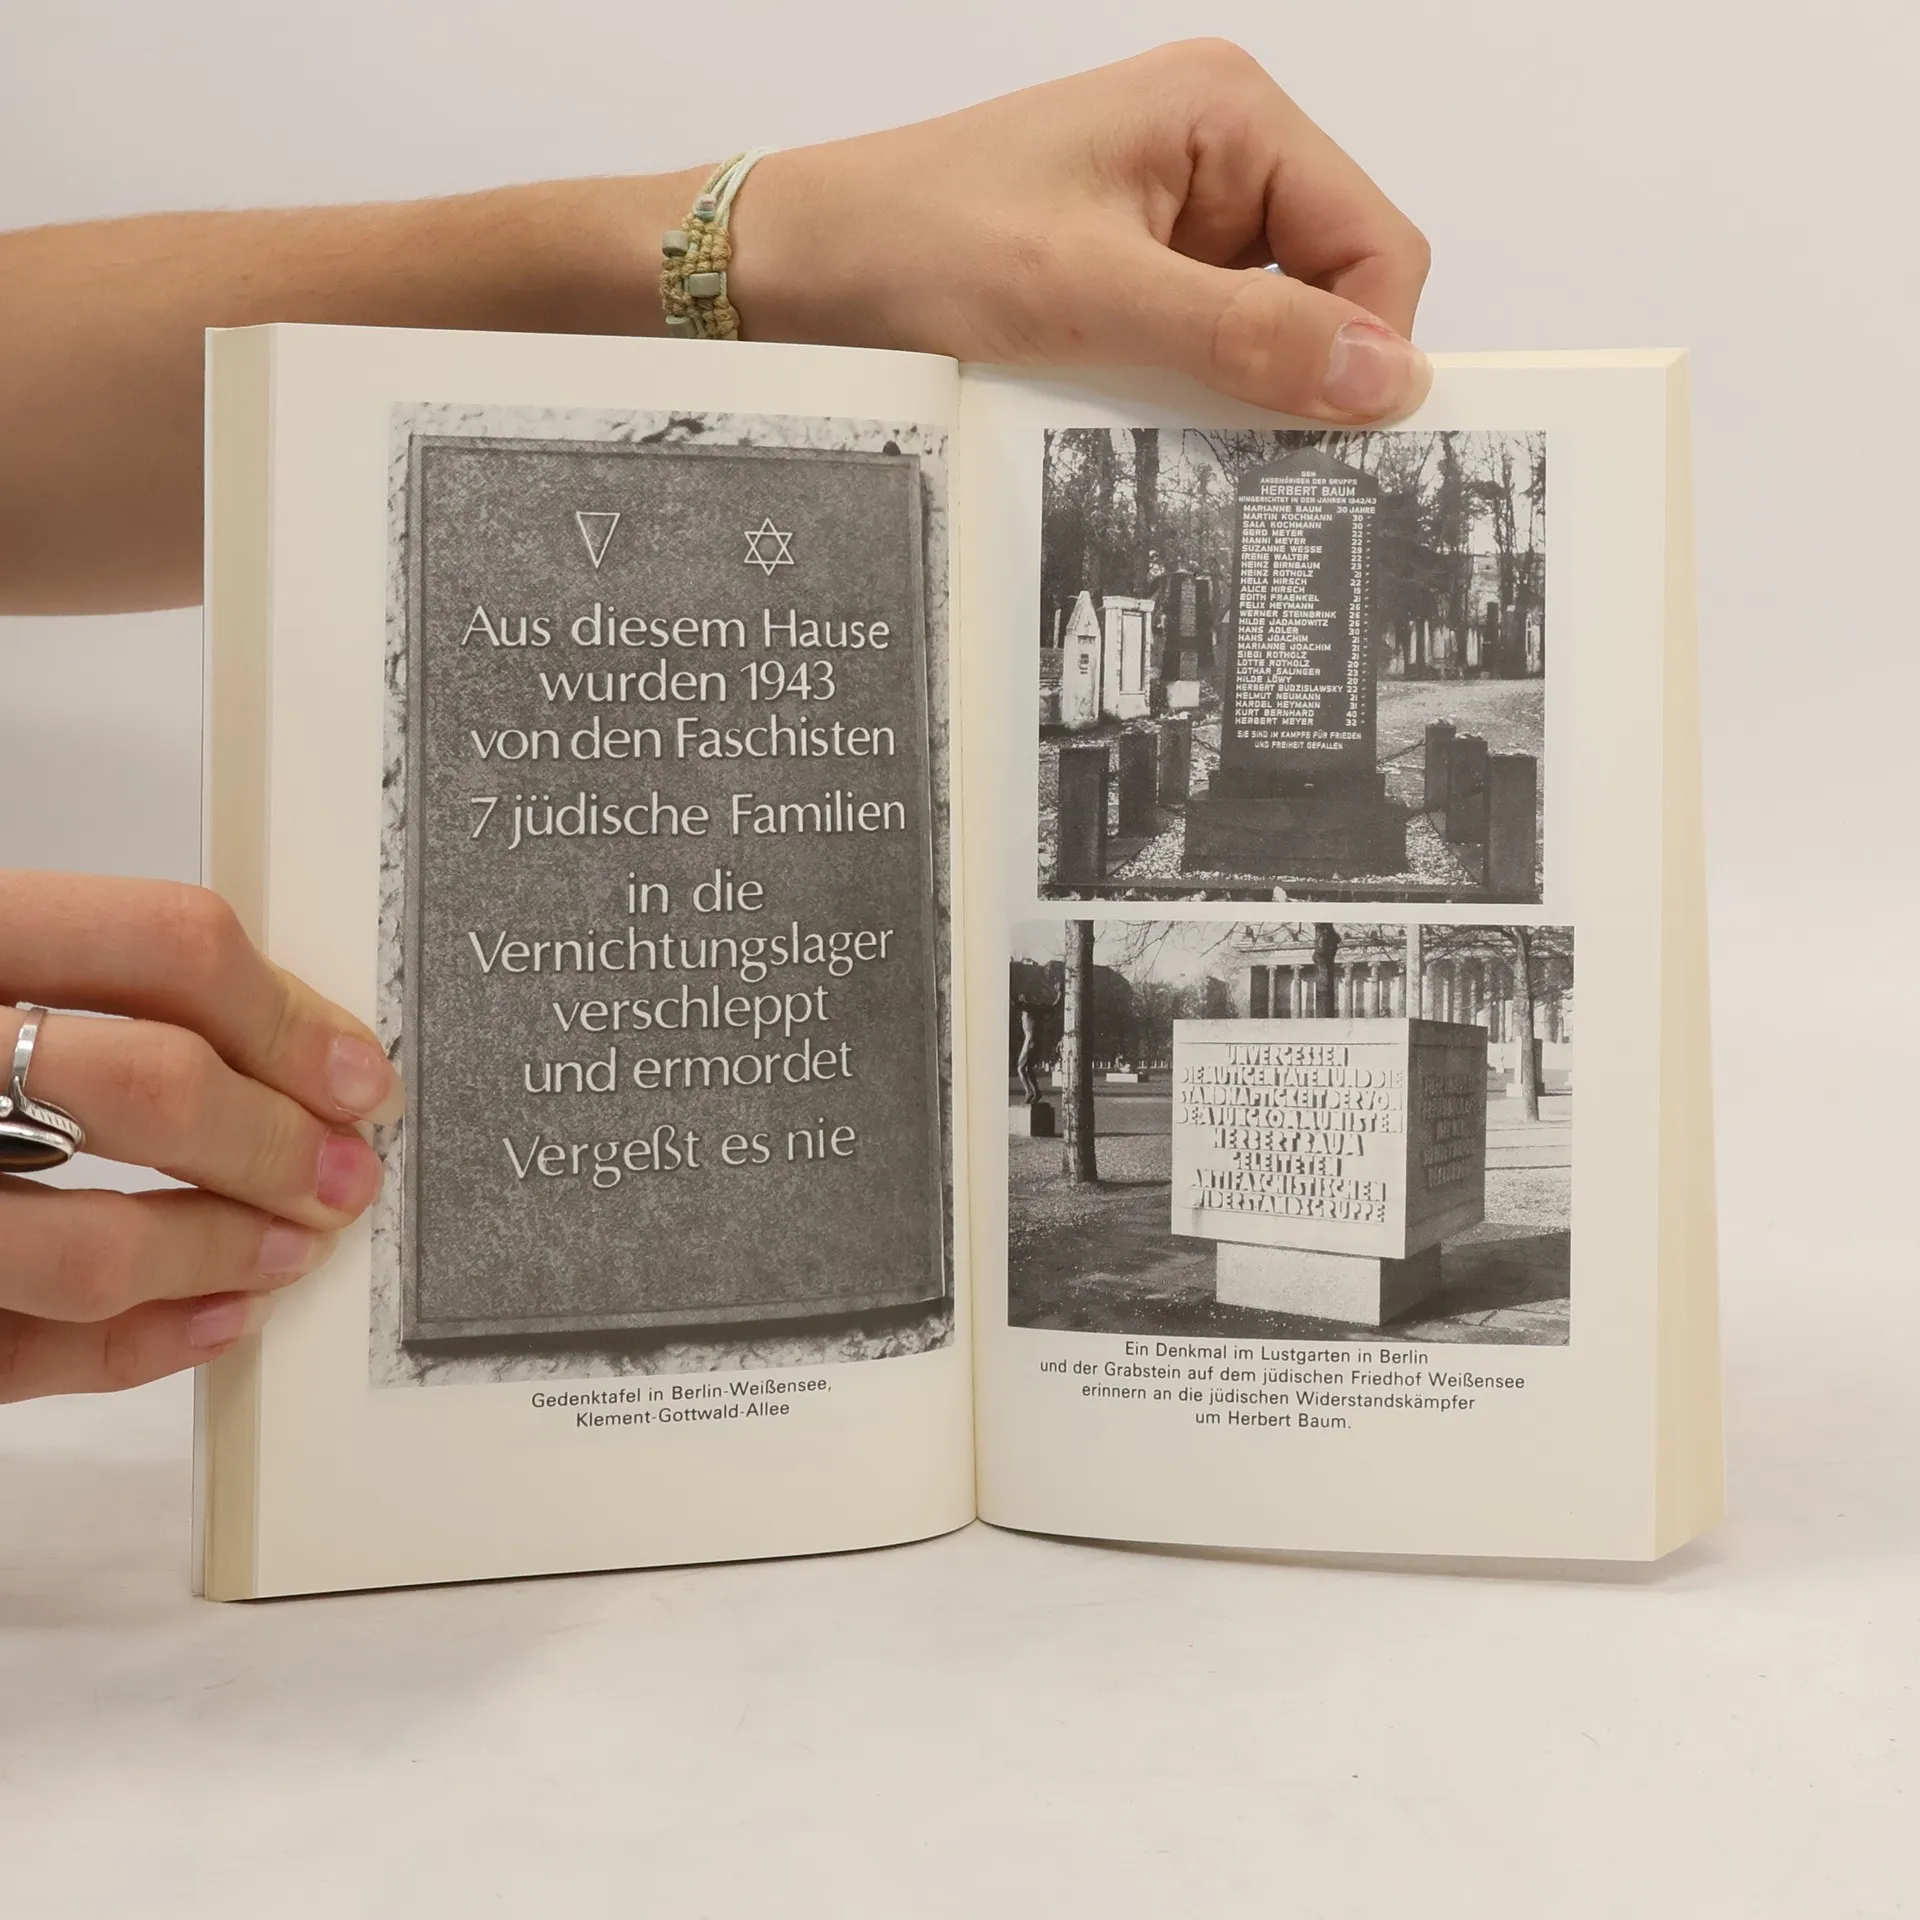 Aus diesem Hause
wurden 1943
von den Faschisten
7 jüdische Familien
in die
Vernichtungslager
verschleppt
und ermordet
Vergeßt es nie
Gedenktafel in Berlin-Weißensee,
Klement-Gottwald-Allee
DEN
ANGEHÖRIGEN DER GRUPPE
HERBERT BAUM
HINGERICHTET IN DEN JAHREN 1942/43
MARIANNE BAUM 30 JAHRE
MARTIN KOCHMANN 30 "
SALA KOCHMANN 30 "
GERD MEYER 22 "
HANNI MEYER 22 "
SUZANNE WESSE 29 "
IRENE WALTER 22 "
HEINZ BIRNBAUM 23 "
HEINZ ROTHOLZ 21 "
HELLA HIRSCH 22 "
ALICE HIRSCH 19 "
EDITH FRAENKEL 21 "
FELIX HEYMANN 26 "
WERNER STEINBRINK 26 "
HILDE JADAMOWITZ 26 "
HANS ADLER 30 "
HANS JOACHIM 21 "
MARIANNE JOACHIM 21 "
SIEGI ROTHOLZ 21 "
LOTTE ROTHOLZ 20 "
LOTHAR SALINGER 23 "
HILDE LÖWY 20 "
HERBERT BUDZISLAWSKY 22 "
HELMUT NEUMANN 21 "
HARDEL HEYMANN 31 "
KURT BERNHARD 40 "
HERBERT MEYER 32 "
SIE SIND IM KAMPFE FÜR FRIEDEN
UND FREIHEIT GEFALLEN
UNVERGESSEN
DIE MUTIGEN TATEN UND DIE
STANDHAFTIGKEIT DER VON
DEM JUNGKOMMUNISTEN
HERBERT BAUM
GELEITETEN
ANTIFASCHISTISCHEN
WIDERSTANDSGRUPPE
Ein Denkmal im Lustgarten in Berlin
und der Grabstein auf dem jüdischen Friedhof Weißensee
erinnern an die jüdischen Widerstandskämpfer
um Herbert Baum.